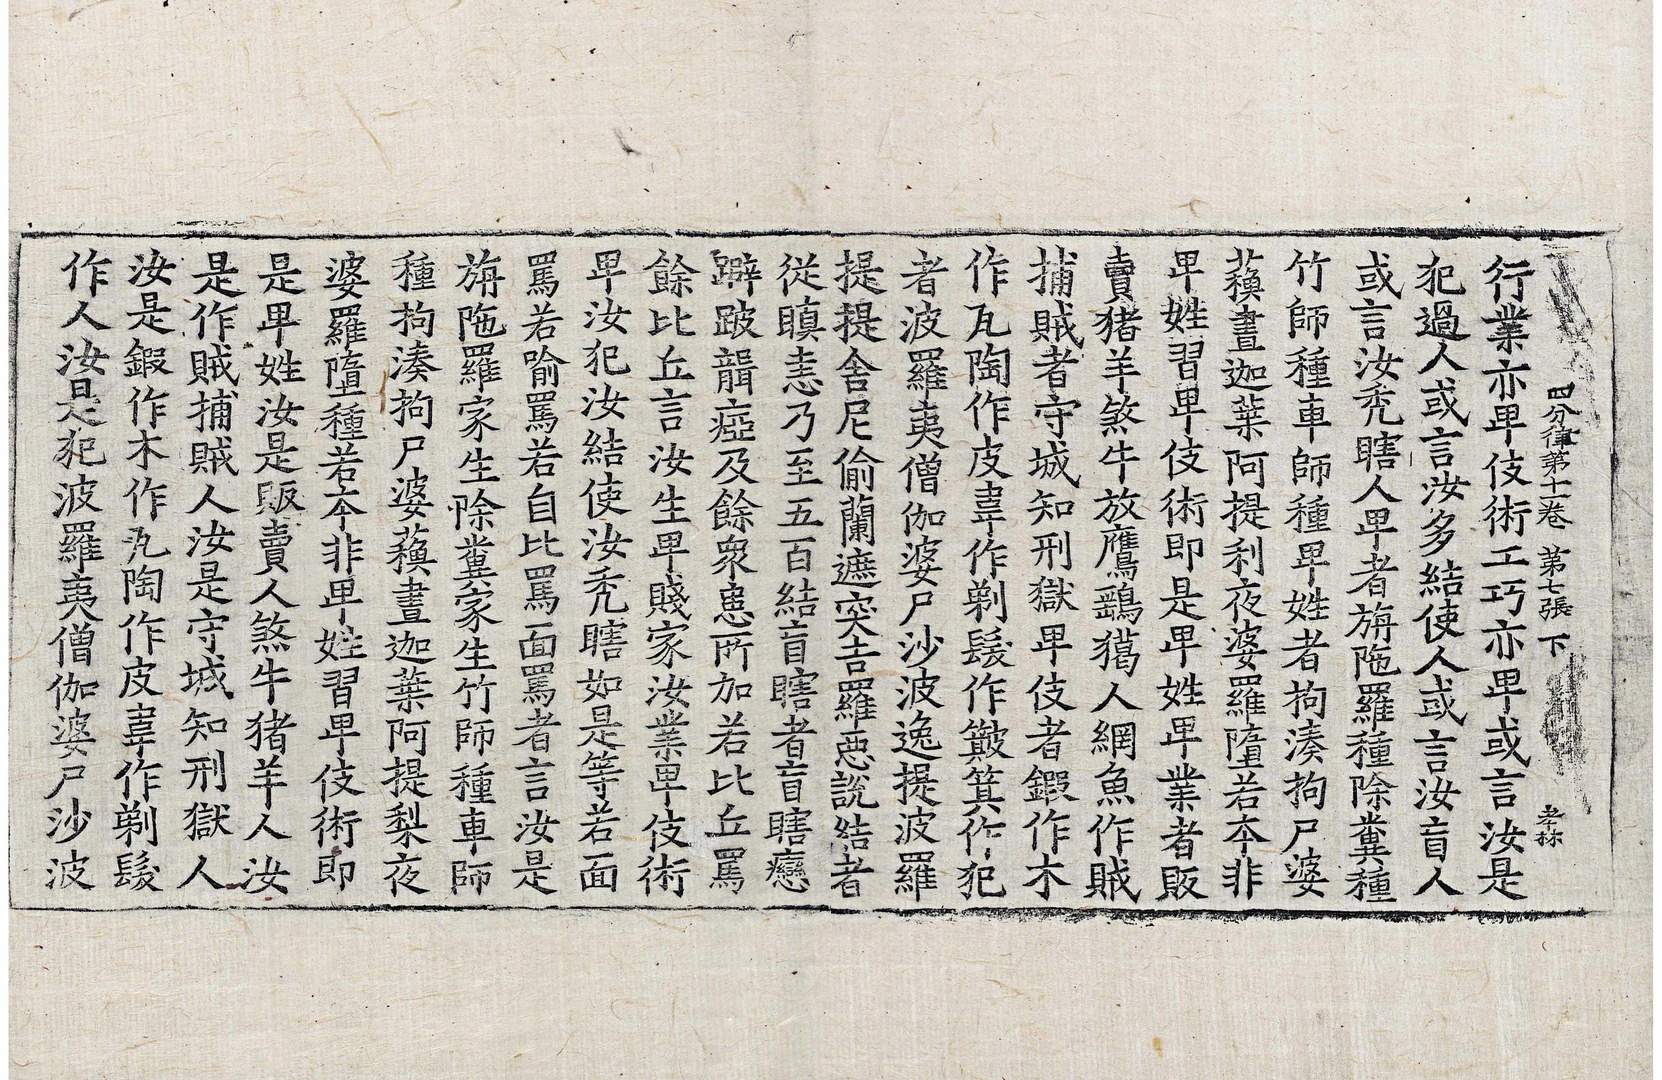 四分律第十一卷 第七張 下 孝林
行業亦卑伎術工巧亦卑或言汝是
犯過人或言汝多結使人或言汝盲人
或言汝禿瞎人卑者旃陁羅種除糞種
竹師種車師種卑姓者拘湊拘尸婆
蘓晝迦葉阿提利夜婆羅墮若夲非
卑姓習卑伎術即是卑姓卑業者販
賣猪羊煞牛放鷹鷂獦人網魚作賊
捕賊者守城知刑獄卑伎者鍛作木
作瓦陶作皮韋作剃髮作簸箕作犯
者波羅夷僧伽婆尸沙波逸提波羅
提提舍尼偷蘭遮突吉羅惡說結者
從瞋恚乃至五百結盲瞎者盲瞎癭
躃跛聾瘂及餘衆患所加若比丘罵
餘比丘言汝生卑賤家汝業卑伎術
卑汝犯汝結使汝禿瞎如是等若面
罵若喻罵若自比罵面罵者言汝是
旃陁羅家生除糞家生竹師種車師
種拘湊拘尸婆蘓晝迦葉阿提梨夜
婆羅墮種若夲非卑姓習卑伎術即
是卑姓汝是販賣人煞牛猪羊人汝
是作賊捕賊人汝是守城知刑獄人
汝是鍛作木作瓦陶作皮韋作剃髮
作人汝是犯波羅夷僧伽婆尸沙波